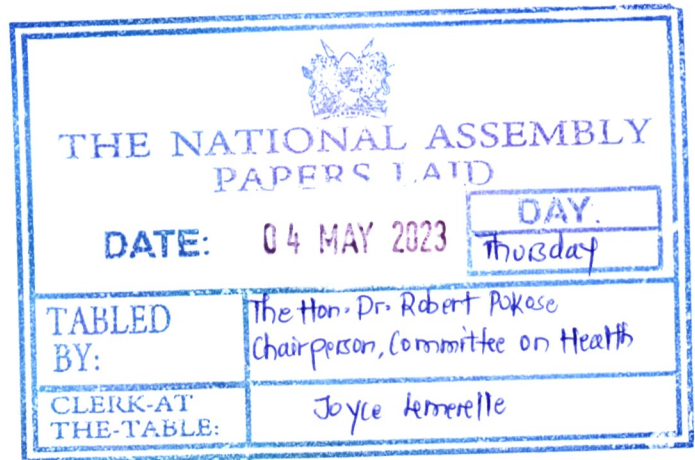 THE NATIONAL ASSEMBLY
PAPERS LAID
DATE: 04 MAY 2023
DAY.
Thursday
TABLED
BY:
The Hon. Dr. Robert Pukose
Chairperson, Committee on Health
CLERK-AT
THE-TABLE:
Joyce Lemerelle